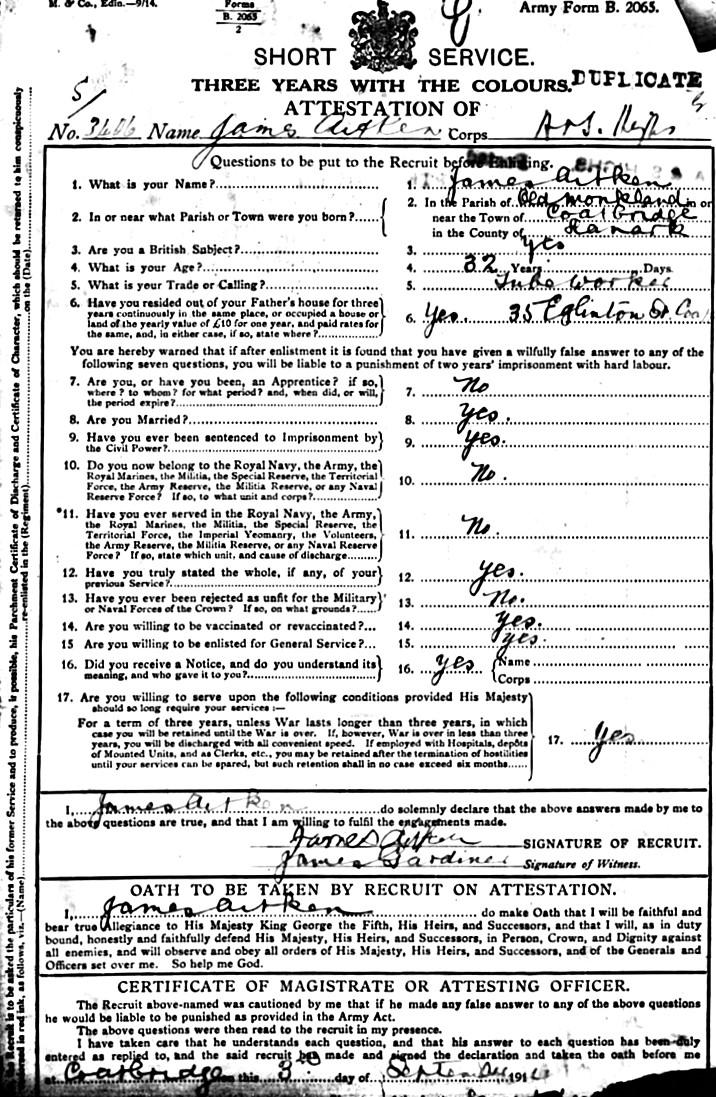 M. & Co., Edin.—9/14.
Forms
B. 2065
2
Army Form B. 2065.
SHORT SERVICE.
THREE YEARS WITH THE COLOURS.
DUPLICATE
ATTESTATION OF
5/
No. 3406 Name James Aitken Corps A & S. Highrs
Questions to be put to the Recruit before Enlisting.
1. What is your Name?
1. James Aitken
2. In or near what Parish or Town were you born?
2. In the Parish of Old Monkland in or
near the Town of Coatbridge
in the County of Lanark
3. Are you a British Subject?
3. Yes
4. What is your Age?
4. 32 Years Days
5. What is your Trade or Calling?
5. Tube Worker
6. Have you resided out of your Father's house for three
years continuously in the same place, or occupied a house or
land of the yearly value of £10 for one year, and paid rates for
the same, and, in either case, if so, state where?
6. Yes. 35 Eglinton St Coat
You are hereby warned that if after enlistment it is found that you have given a wilfully false answer to any of the
following seven questions, you will be liable to a punishment of two years' imprisonment with hard labour.
7. Are you, or have you been, an Apprentice? if so,
where? to whom? for what period? and, when did, or will,
the period expire?
7. No
8. Are you Married?
8. Yes.
9. Have you ever been sentenced to Imprisonment by
the Civil Power?
9. Yes.
10. Do you now belong to the Royal Navy, the Army, the
Royal Marines, the Militia, the Special Reserve, the Territorial
Force, the Army Reserve, the Militia Reserve, or any Naval
Reserve Force? If so, to what unit and corps?
10. No.
*11. Have you ever served in the Royal Navy, the Army,
the Royal Marines, the Militia, the Special Reserve, the
Territorial Force, the Imperial Yeomanry, the Volunteers,
the Army Reserve, the Militia Reserve, or any Naval Reserve
Force? If so, state which unit, and cause of discharge
11. No.
12. Have you truly stated the whole, if any, of your
previous Service?
12. Yes.
13. Have you ever been rejected as unfit for the Military
or Naval Forces of the Crown? If so, on what grounds?
13. No.
14. Are you willing to be vaccinated or revaccinated?...
14. Yes.
15 Are you willing to be enlisted for General Service?...
15. Yes
16. Did you receive a Notice, and do you understand its
meaning, and who gave it to you?
16. Yes
Name
Corps
17. Are you willing to serve upon the following conditions provided His Majesty
should so long require your services :—
For a term of three years, unless War lasts longer than three years, in which
case you will be retained until the War is over. If, however, War is over in less than three
years, you will be discharged with all convenient speed. If employed with Hospitals, depôts
of Mounted Units, and as Clerks, etc., you may be retained after the termination of hostilities
until your services can be spared, but such retention shall in no case exceed six months
17. Yes
I, James Aitken do solemnly declare that the above answers made by me to
the above questions are true, and that I am willing to fulfil the engagements made.
James Aitken SIGNATURE OF RECRUIT.
James Gardiner Signature of Witness.
OATH TO BE TAKEN BY RECRUIT ON ATTESTATION.
I, James Aitken do make Oath that I will be faithful and
bear true Allegiance to His Majesty King George the Fifth, His Heirs, and Successors, and that I will, as in duty
bound, honestly and faithfully defend His Majesty, His Heirs, and Successors, in Person, Crown, and Dignity against
all enemies, and will observe and obey all orders of His Majesty, His Heirs, and Successors, and of the Generals and
Officers set over me. So help me God.
CERTIFICATE OF MAGISTRATE OR ATTESTING OFFICER.
The Recruit above-named was cautioned by me that if he made any false answer to any of the above questions
he would be liable to be punished as provided in the Army Act.
The above questions were then read to the recruit in my presence.
I have taken care that he understands each question, and that his answer to each question has been duly
entered as replied to, and the said recruit has made and signed the declaration and taken the oath before me
at Coatbridge on this 3 day of September 1914
The Recruit is to be asked the particulars of his former Service and to produce, if possible, his Parchment Certificate of Discharge and Certificate of Character, which should be returned to him conspicuously
endorsed in red ink, as follows, viz.—(Name) re-enlisted in the (Regiment) on the (Date)